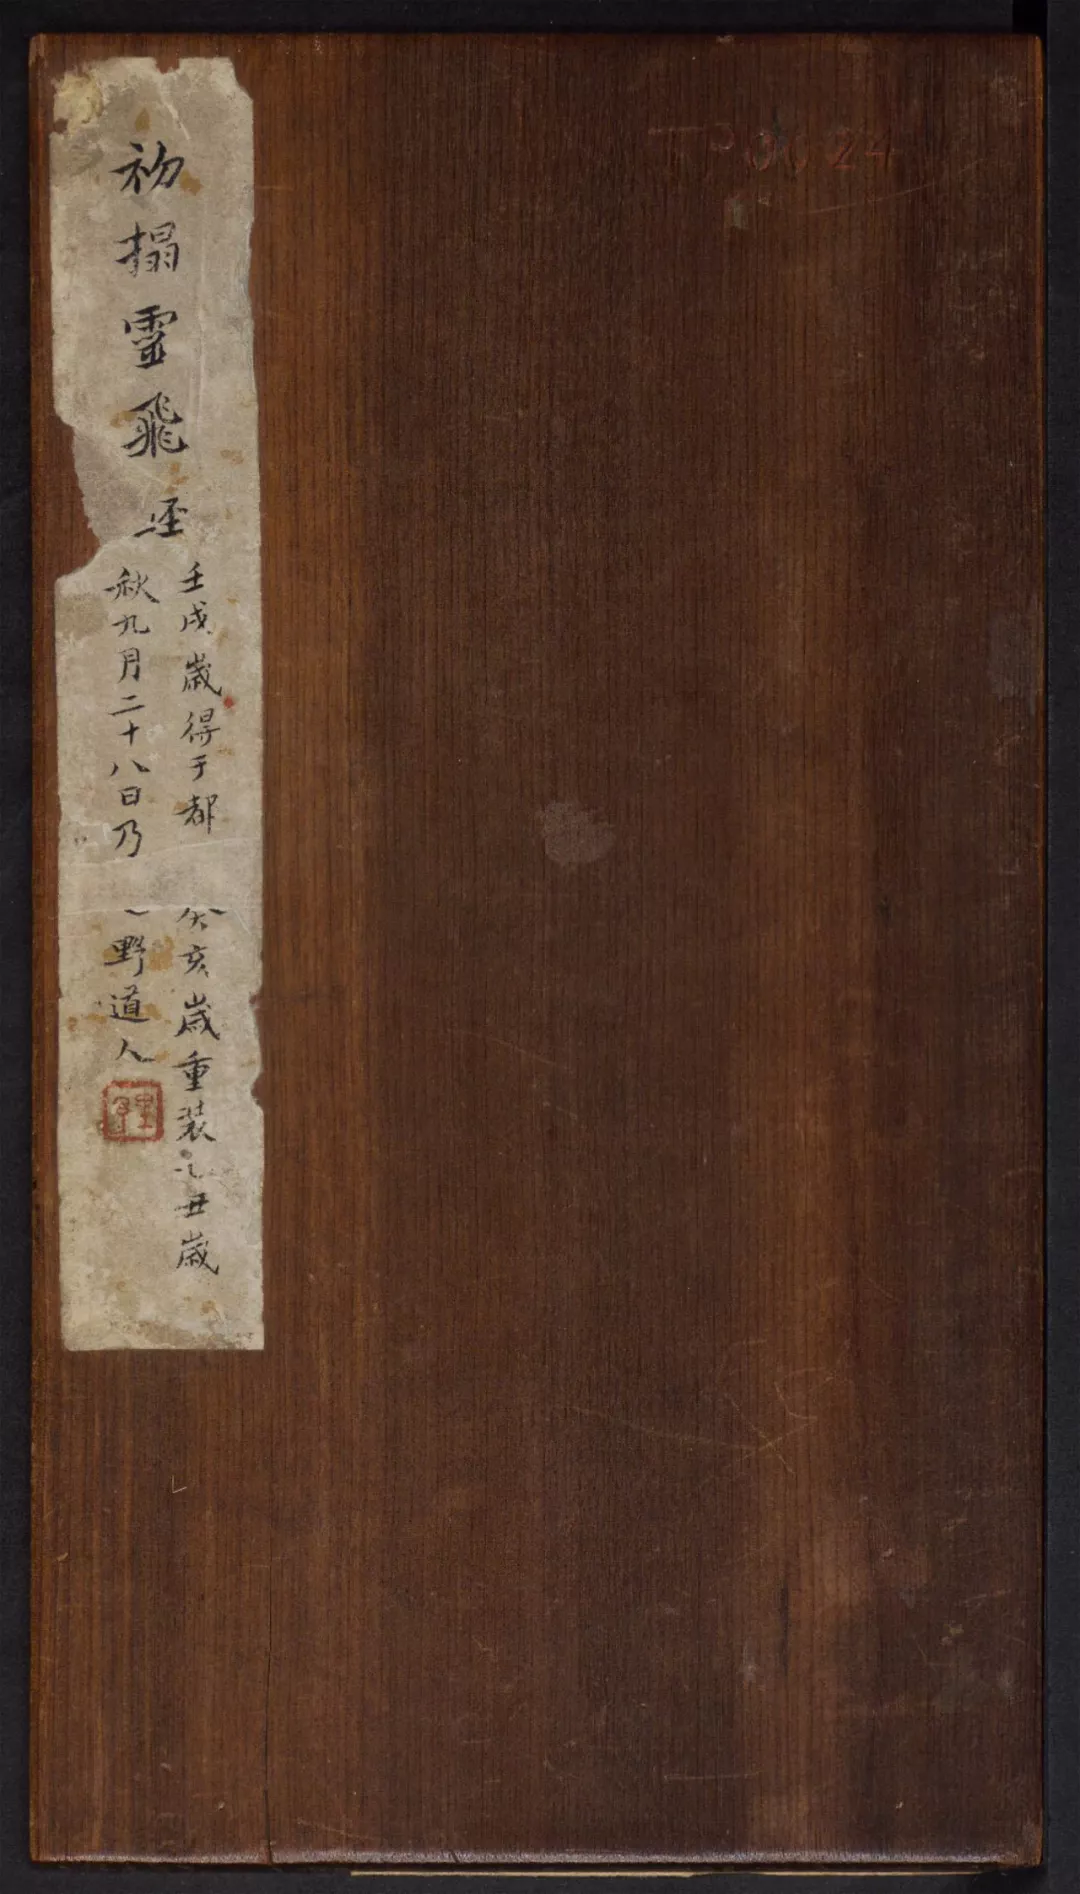 初搨靈飛經
壬戌歲得于都
癸亥歲重裝乙丑歲
秋九月二十八日乃
野道人
TP0024